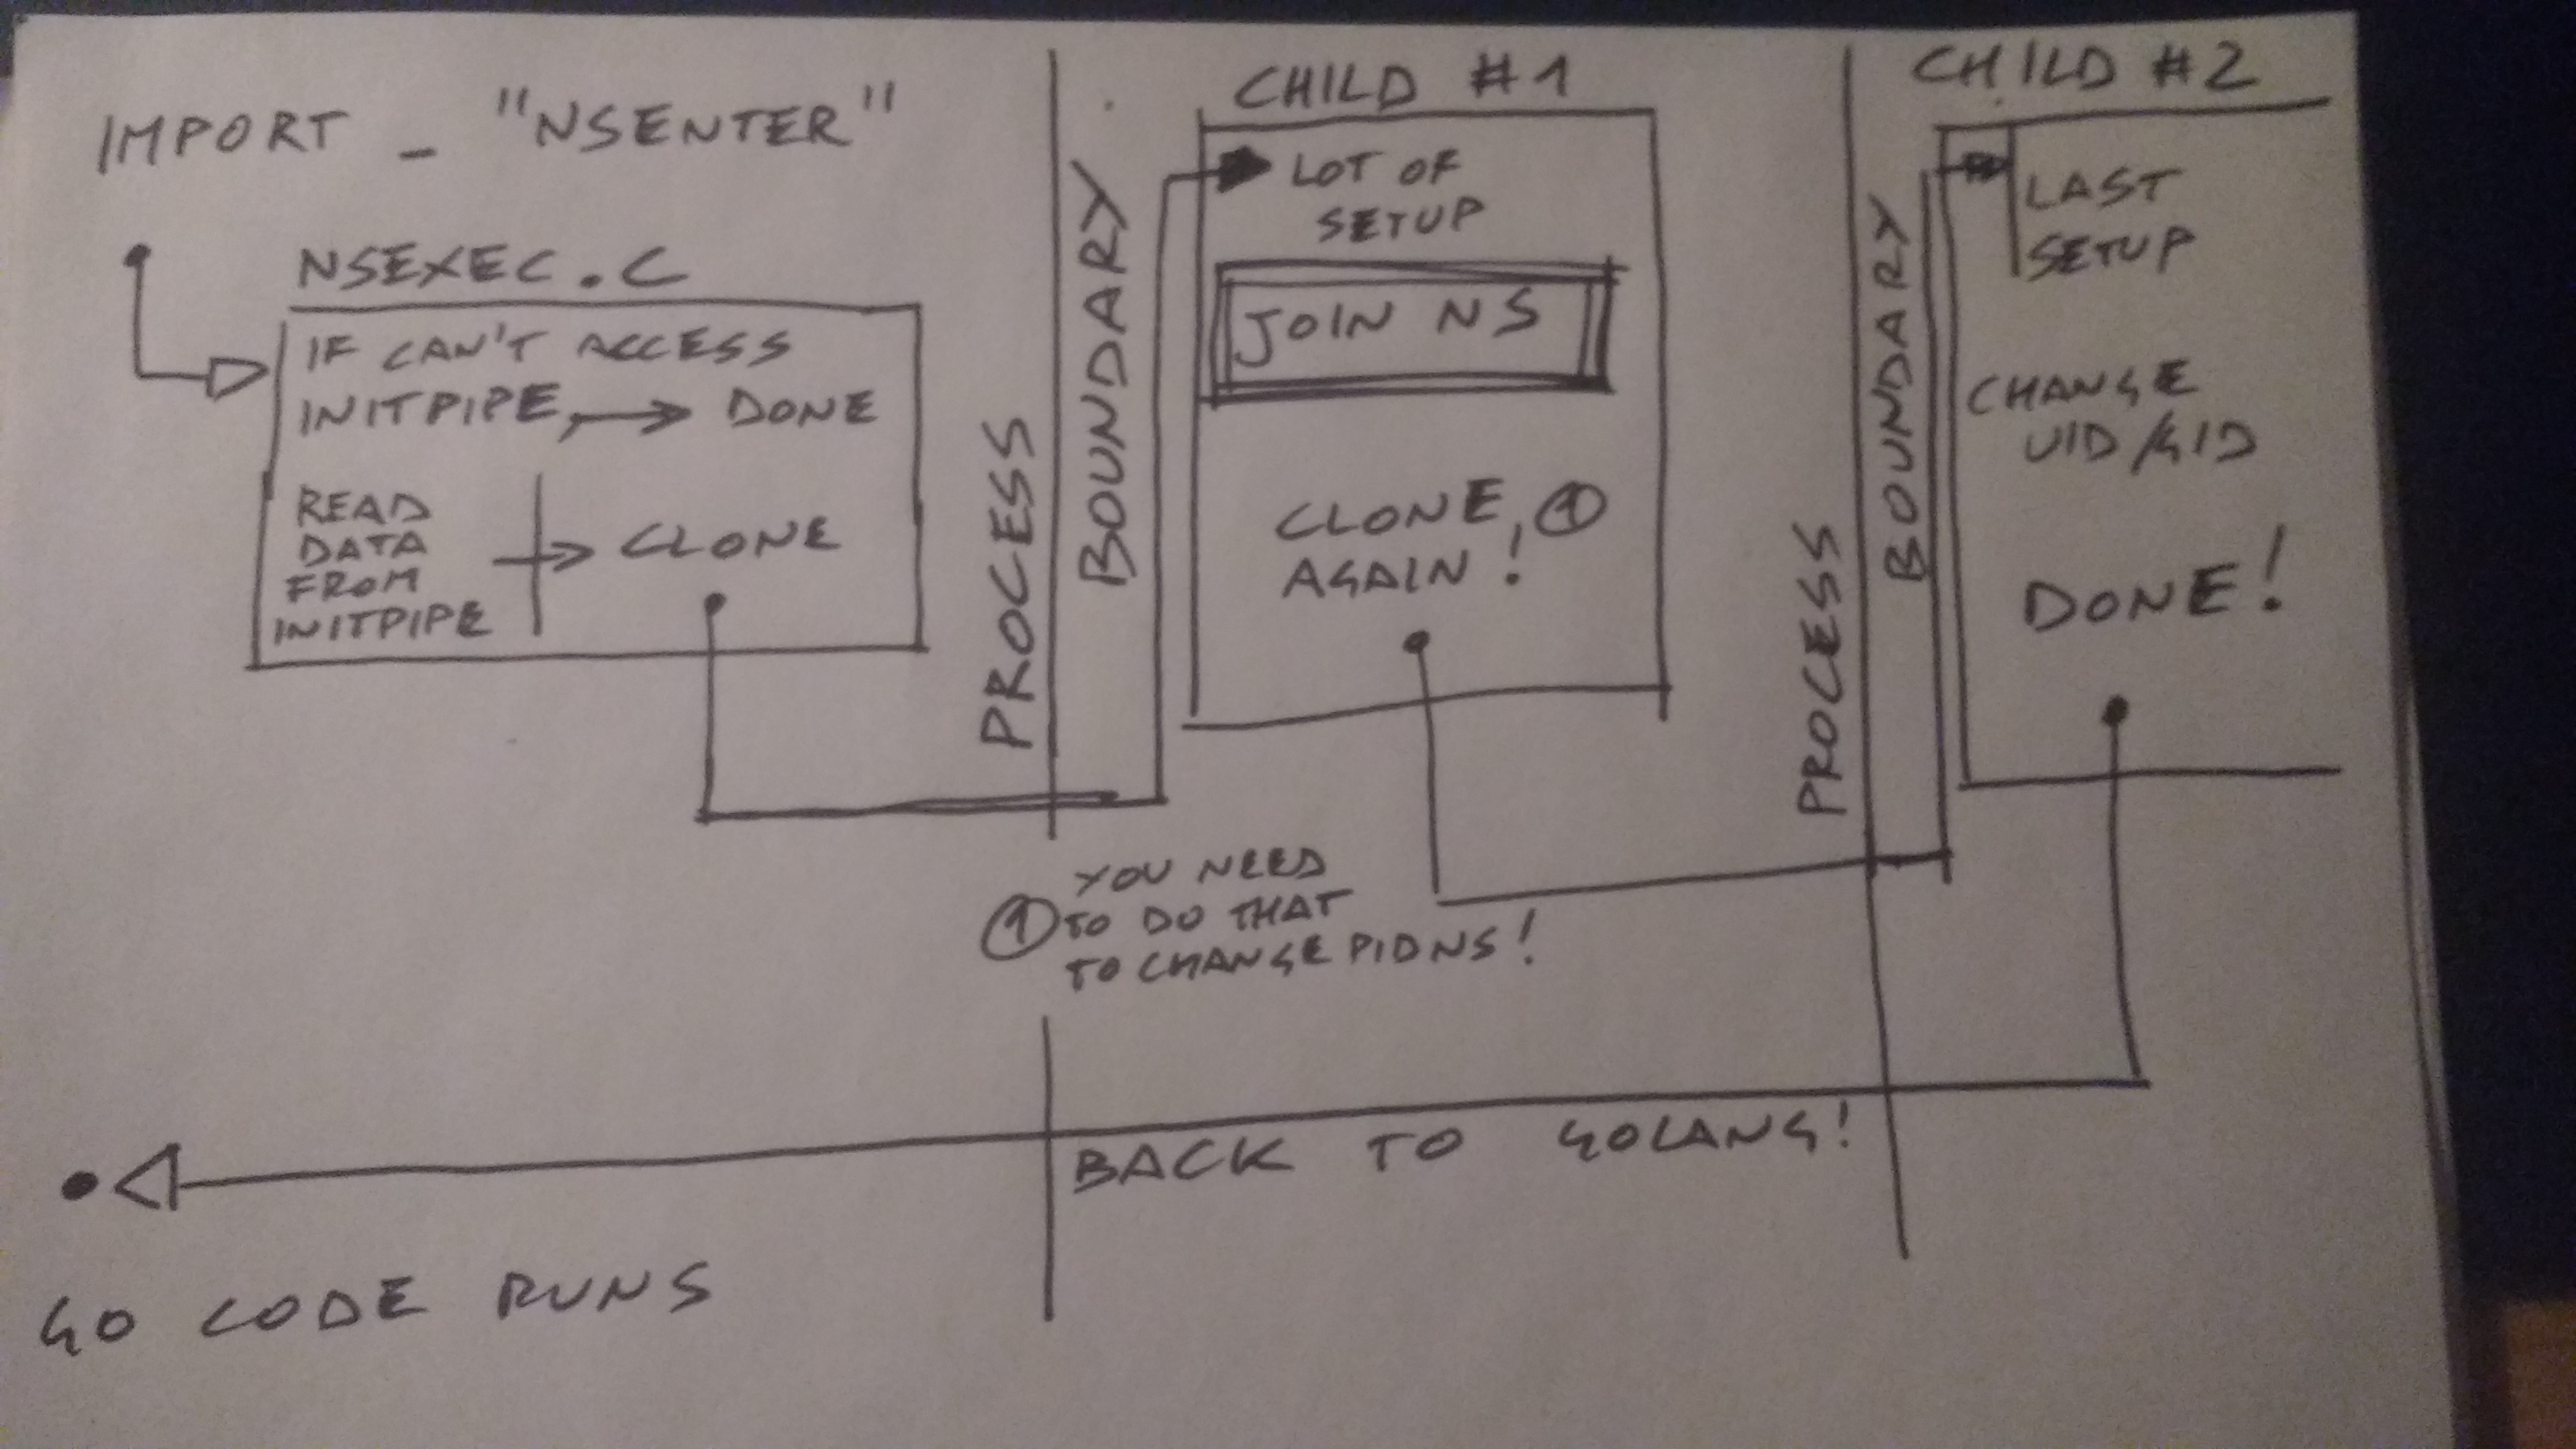 IMPORT _ "NSENTER"
NSEXEC.C
IF CAN'T ACCESS
INITPIPE, → DONE
READ
DATA
FROM
INITPIPE
→ CLONE
PROCESS
BOUNDARY
CHILD #1
LOT OF
SETUP
JOIN NS
CLONE, ①
AGAIN!
① YOU NEED
TO DO THAT
TO CHANGE PIDNS!
PROCESS
BOUNDARY
CHILD #2
LAST
SETUP
CHANGE
UID/GID
DONE!
BACK TO GOLANG!
GO CODE RUNS